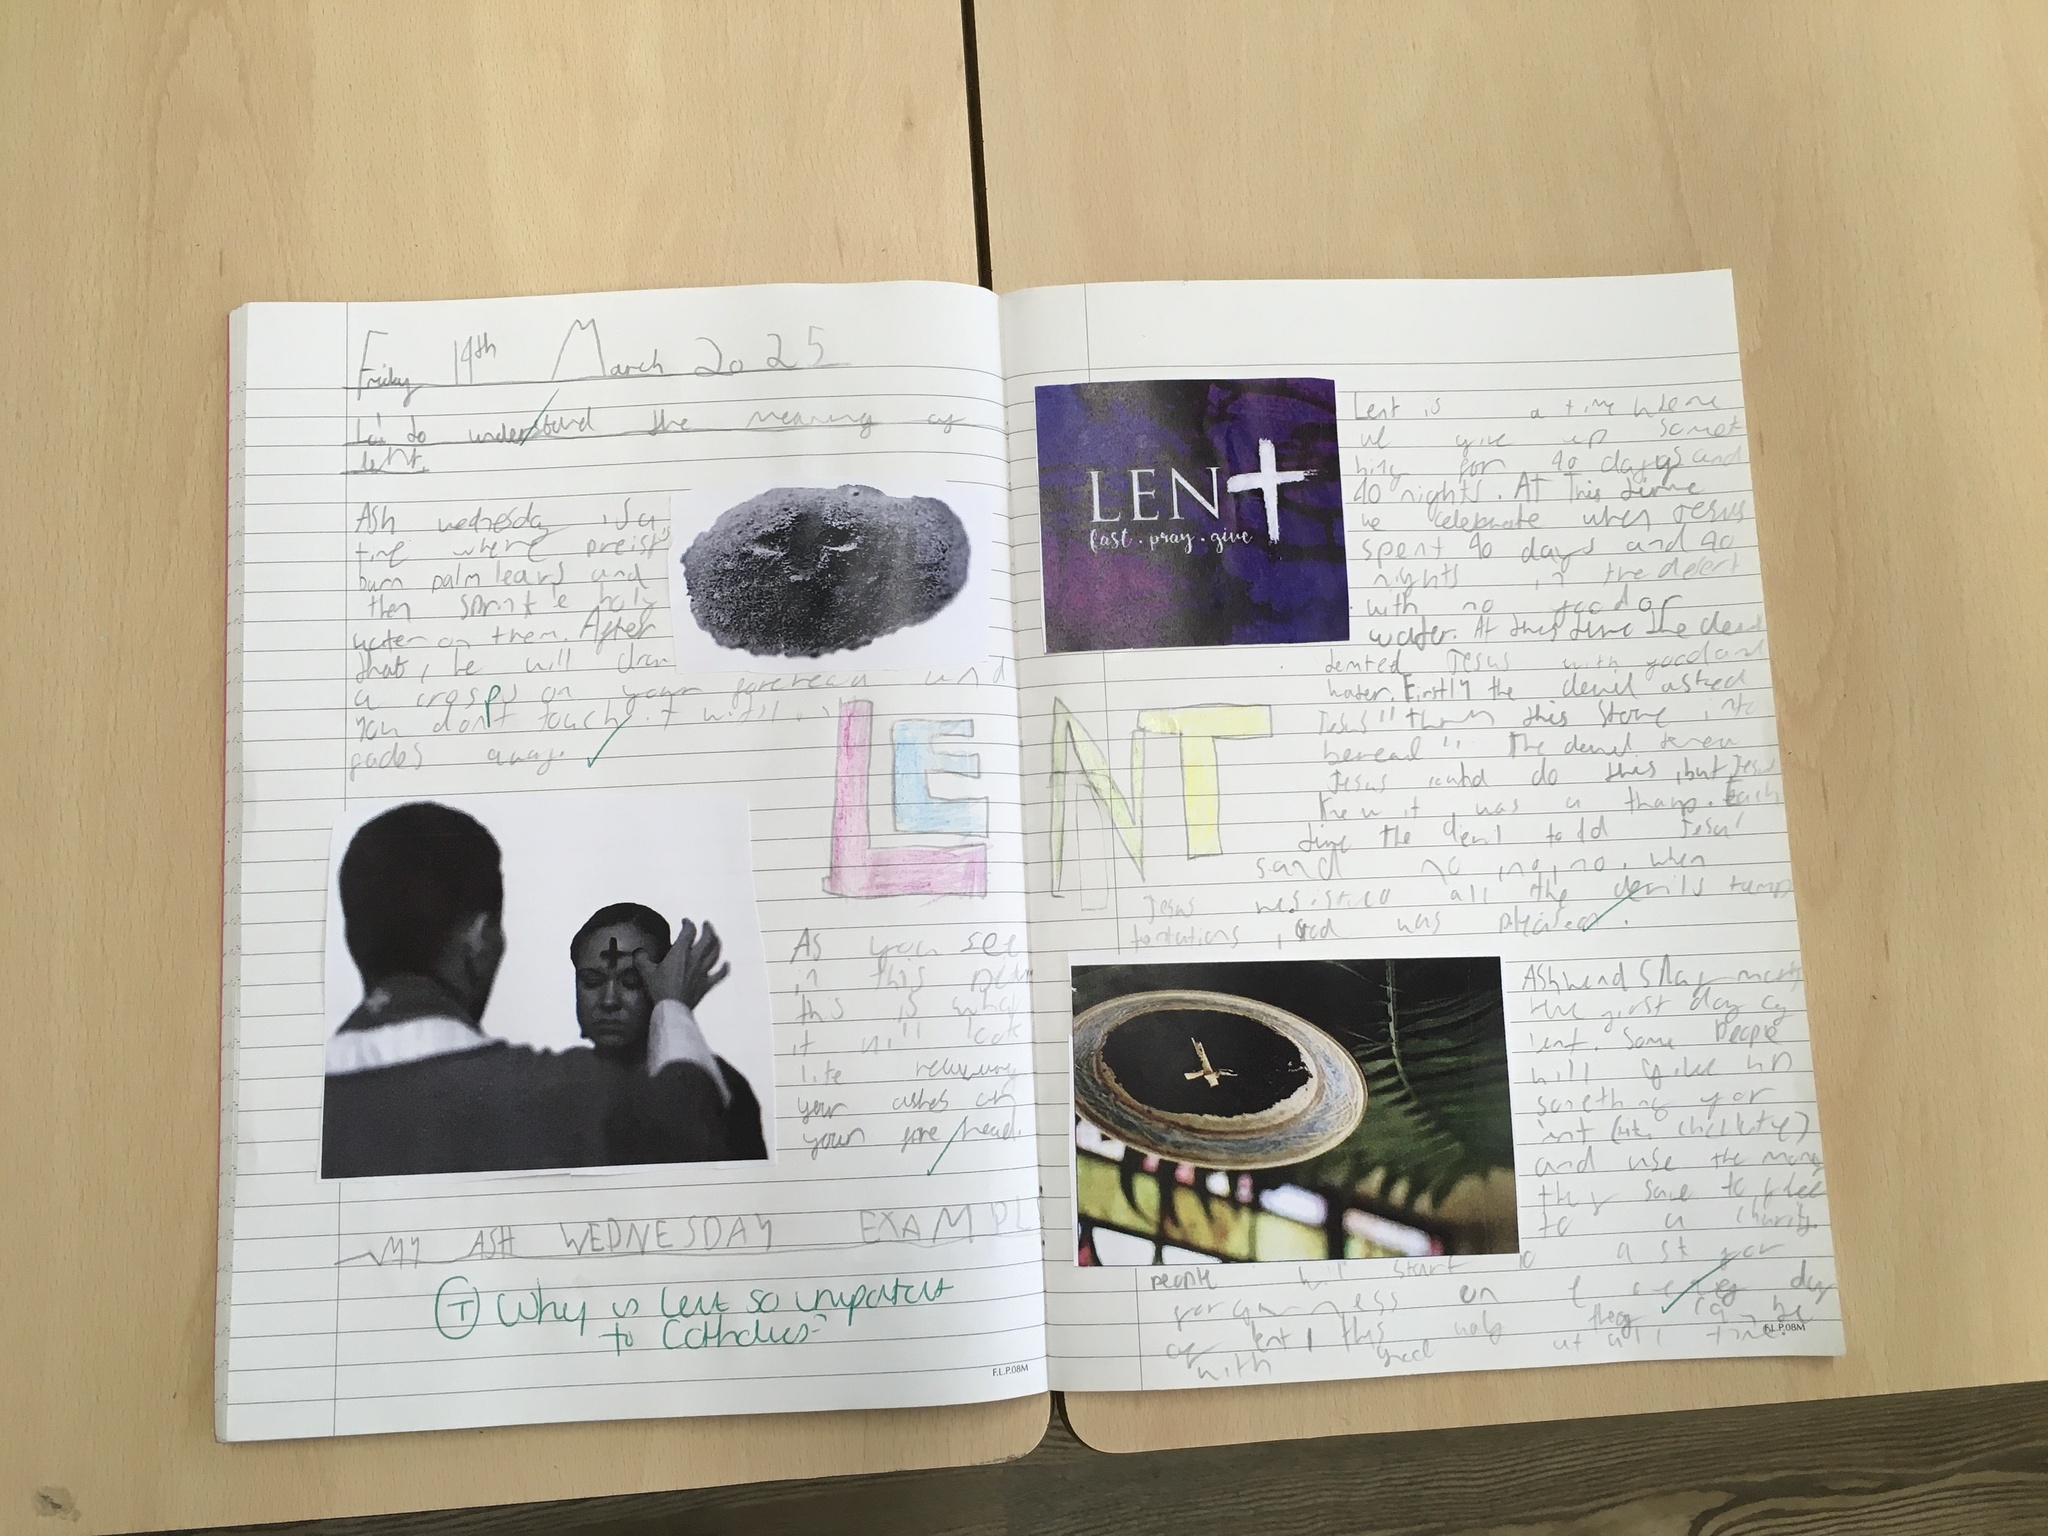 Friday 14th March 2025
to understand the meaning of
lent.
Ash wednesday is a
time where preists
burn palm lears and
then sprinkle holy
water on them. After
that, he will draw
a cross on your forehead and
you don't touch it
fades away.
LENT
As you see
in this
this is what
it will look
like
your ashes on
your fore head.
MY ASH WEDNESDAY EXAMPL
T Why is lent so important
to Catholics?
F.L.P.08M
LENT
fast . pray . give
Lent is a time where
we give up somet
hing for 40 days and
40 nights. At this time
we celebrate when Jesus
spent 40 days and 40
nights in the desert
with no food or
water. At this time the
Jesus with food and
water. Firstly the devil asked
Jesus " this stone into
beread". The devil
Jesus do this, but Jesus
knew it was a Each
time the devil told Jesus
said no, no, no. when
Jesus resisted all the devils temp
tantations, God was pleased.
Ash
the first day of
lent. Some people
will up
something for
lent
and use the money
they save to
to a charity.
people will start to ask for
on day
of lent, this way they can be
with god at all time.
F.L.P.08M